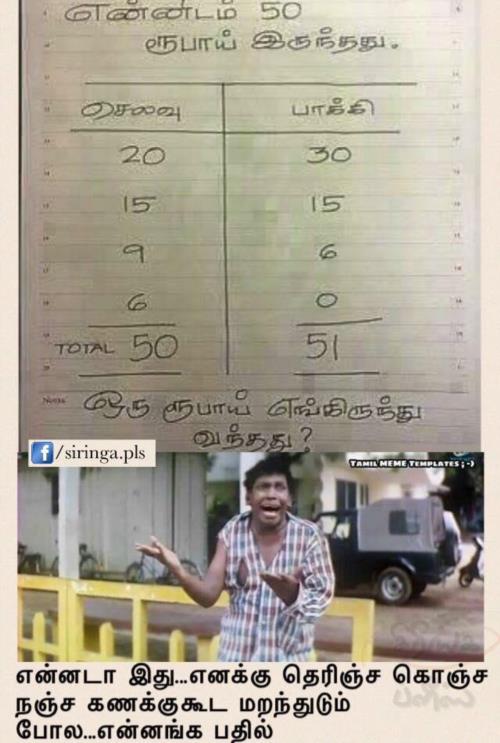 என்னிடம் 50
ரூபாய் இருந்தது.
செலவு பாக்கி
20 30
15 15
9 6
6 0
TOTAL 50 51
ஒரு ரூபாய் எங்கிருந்து
வந்தது?
f/siringa.pls
TAMIL MEME TEMPLATES ;-)
என்னடா இது...எனக்கு தெரிஞ்ச கொஞ்ச
நஞ்ச கணக்குகூட மறந்துடும்
போல...என்னங்க பதில்